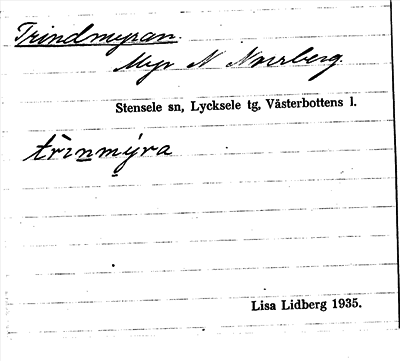 Trindmyran.
Myr N Norrberg.
Stensele sn, Lycksele tg, Västerbottens l.
trinmýra
Lisa Lidberg 1935.